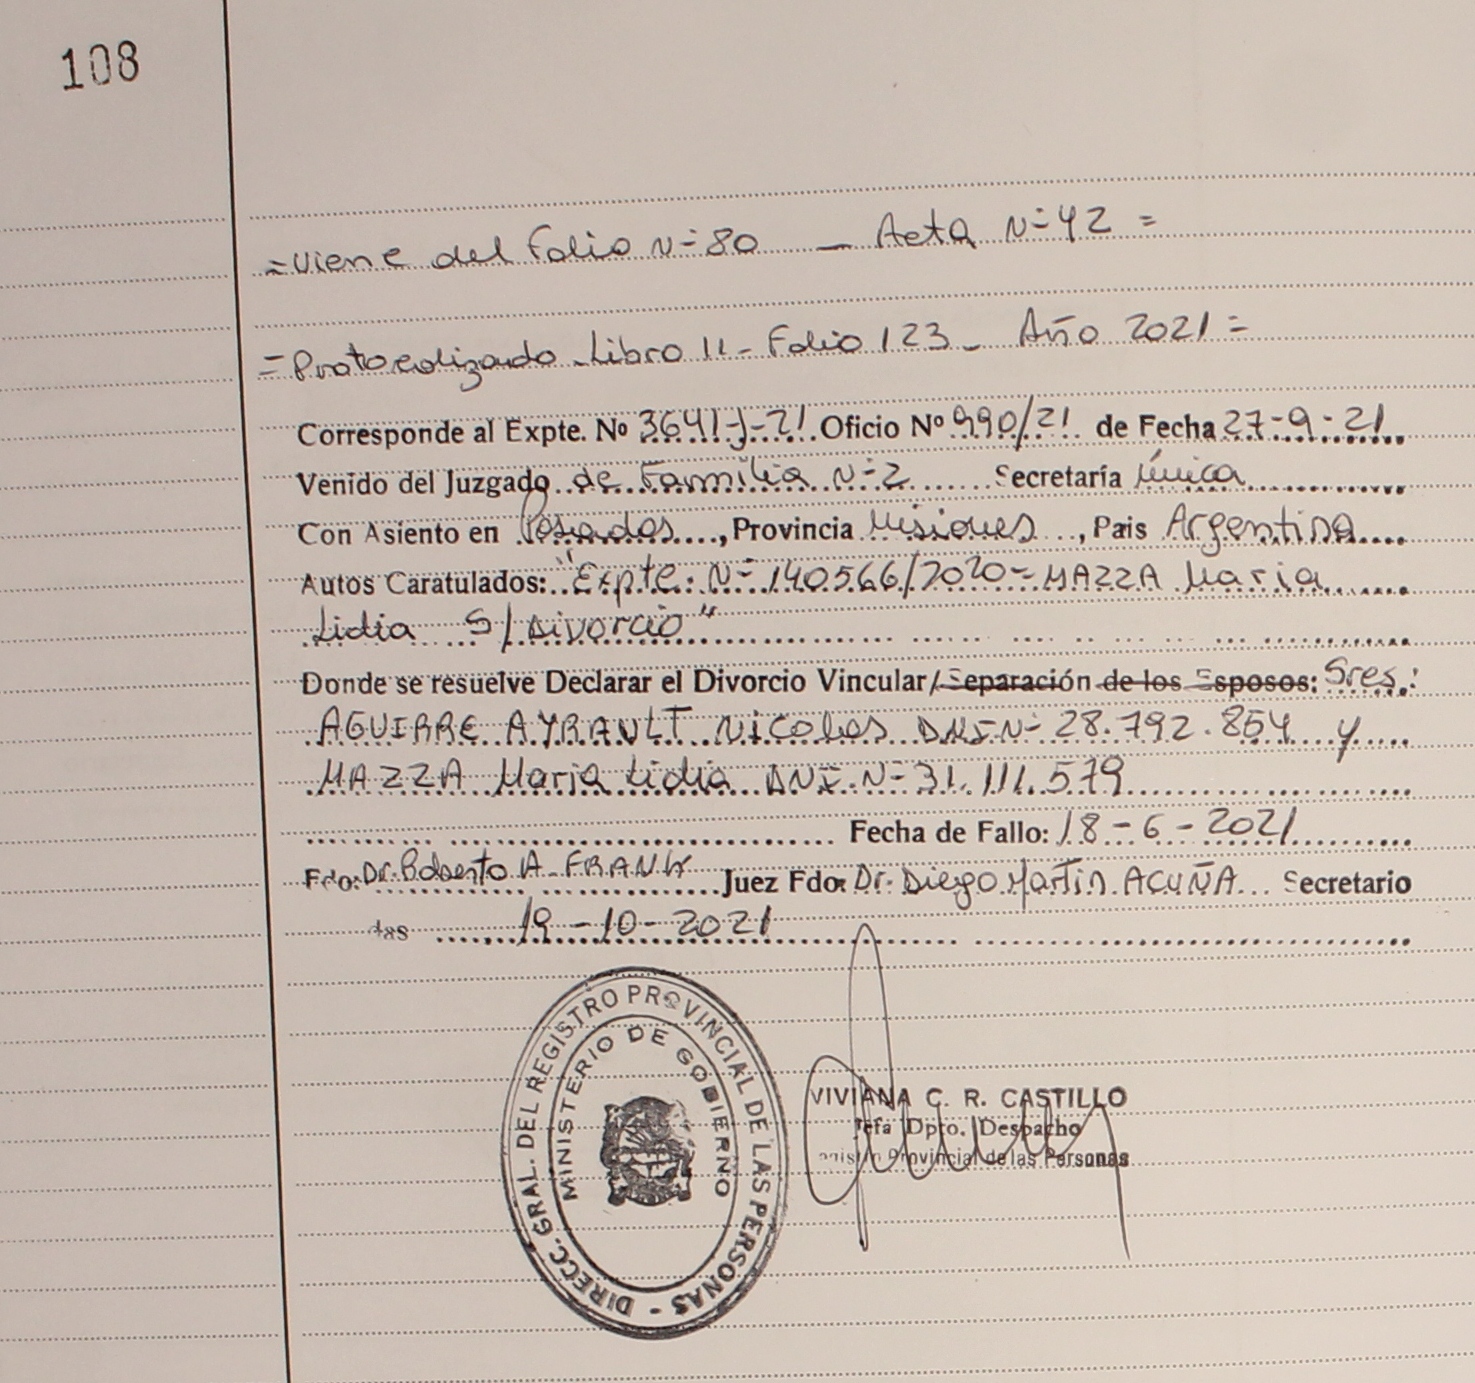 108
=Viene del Folio N=80 — Acta N=42 =
=Protocolizado - Libro 11 - Folio 123 - Año 2021 =
Corresponde al Expte. Nº 3641-J-21 Oficio Nº 990/21 de Fecha 27-9-21
Venido del Juzgado de Familia N=2 Secretaría Única
Con Asiento en Posadas, Provincia Misiones, Pais Argentina
Autos Caratulados: "Expte. N= 140566/2020= MAZZA Maria
Lidia S/Divorcio"
Donde se resuelve Declarar el Divorcio Vincular/Separación de los Esposos: Sres.:
AGUIRRE AYRAULT Nicolas DNI N= 28.792.854 y
MAZZA Maria Lidia DNI. N= 31.111.579
Fecha de Fallo: 18-6-2021
Fdo: Dr. Roberto A. FRANK Juez Fdo: Dr. Diego Martin ACUÑA Secretario
19-10-2021
DIRECC. GRAL. DEL REGISTRO PROVINCIAL DE LAS PERSONAS -
MINISTERIO DE GOBIERNO
VIVIANA C. R. CASTILLO
Jefa Dpto. Despacho
Provincial de las Personas